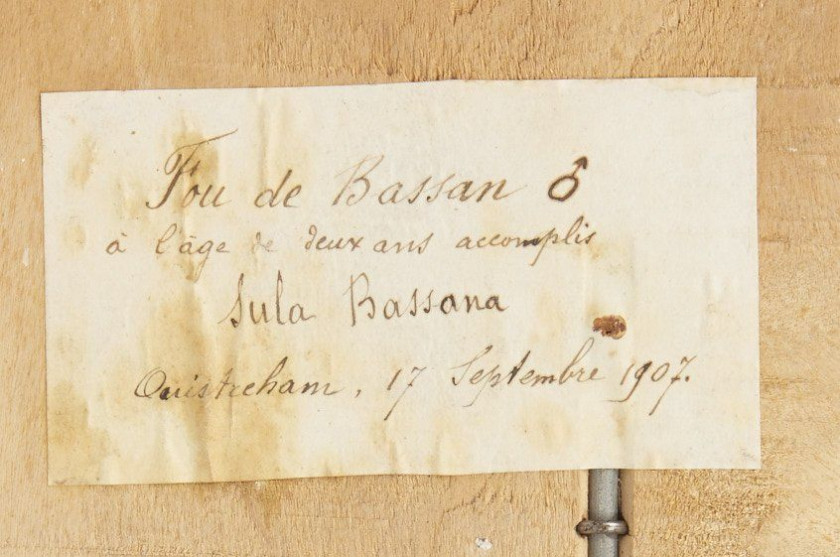 Fou de Bassan ♂
à l'âge de deux ans accomplis
Sula Bassana
Ouistreham, 17 Septembre 1907.